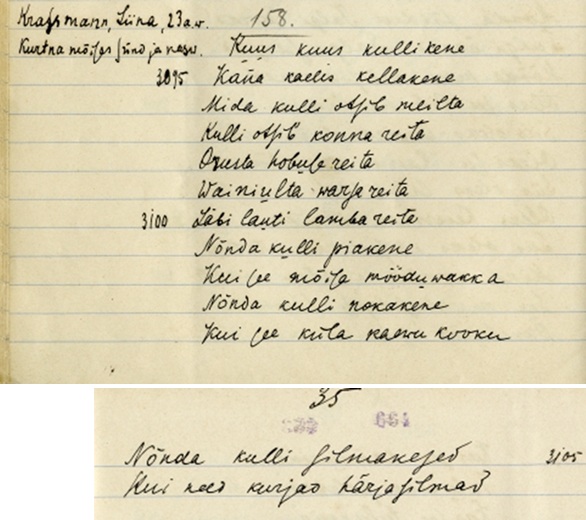 Krafsmann, Liina, 23 a.w. 158.
Kurtna mõisas sünd ja kasw. Kuus kuus kullikene
3095 Käña kaelis kellakene
Mida kulli otsib meilta
Kulli otsib konna reita
Orusta hobuse reita
Wainiulta warsa reita
3100 Läbi lauti lamba reita
Nõnda kulli piakene
Kui see mõisa mõõduwakka
Nõnda kulli nokakene
Kui see küla kaewu kooku
35
Nõnda kulli silmakesed 3105
Kui need kurjad härjasilmad